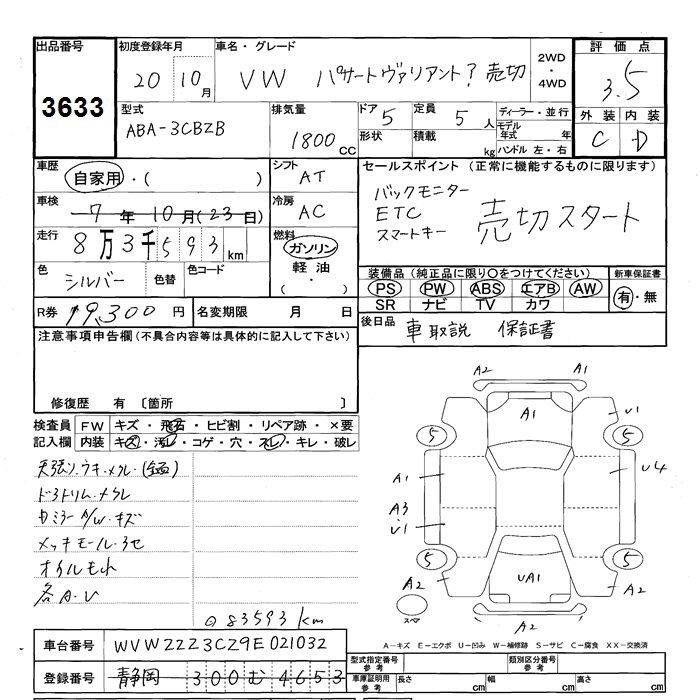 出品番号 初度登録年月 車名・グレード 2WD・4WD 評価点
3633
20 10月 VW パサートヴァリアント? 売切 3.5
型式 排気量 ドア 5 定員 5人 ディーラー・並行 外装 内装
ABA-3CBZB 1800cc 形状 積載 kg モデル年式 年 ハンドル 左・右 C D
車歴 自家用・( ) シフト AT セールスポイント (正常に機能するものに限ります)
車検 7年10月(23日) 冷房 AC バックモニター
ETC 売切スタート
走行 8万3千593km 燃料 ガソリン スマートキー
軽油
( ・ )
色 シルバー 色替 色コード 装備品(純正品に限り○をつけてください) 新車保証書
PS PW ABS エアB AW 有・無
SR ナビ TV カワ
R券 19,300円 名変期限 月 日 後日品 車取説 保証書
注意事項申告欄(不具合内容等は具体的に記入して下さい)
修復歴 有〔箇所 〕
検査員記入欄 FW キズ・飛石・ヒビ割・リペア跡・×要
内装 キズ・汚レ・コゲ・穴・スレ・キレ・破レ
A2 A1
A1 U1
5 5
A1 U4
A3
U1
5 5
UA1
A2 A2
スペア A2
ドアトリム・メクレ
メッキモール・クセ
各A・U
◎83593km
A-キズ E-エクボ U-凹み W-補修跡 S-サビ C-腐食 XX-交換済
車台番号 WVWZZZ3CZ9E021032 型式指定番号 参考 類別区分番号 参考
登録番号 静岡 300 む 4653 車庫証明用 参考 長さ cm 幅 cm 高さ cm